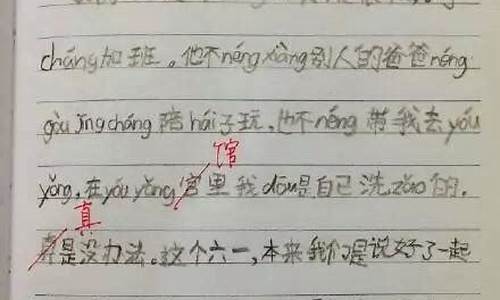 cháng加班。他不néng xiàng别人的爸爸néng
gòu jīng cháng陪hái子玩,也不néng带我去yóu
馆
yǒng,在yóu yǒng官里我dōu是自己洗zǎo的,
真
真是没办法。这个六一,本来我们是说好了一起